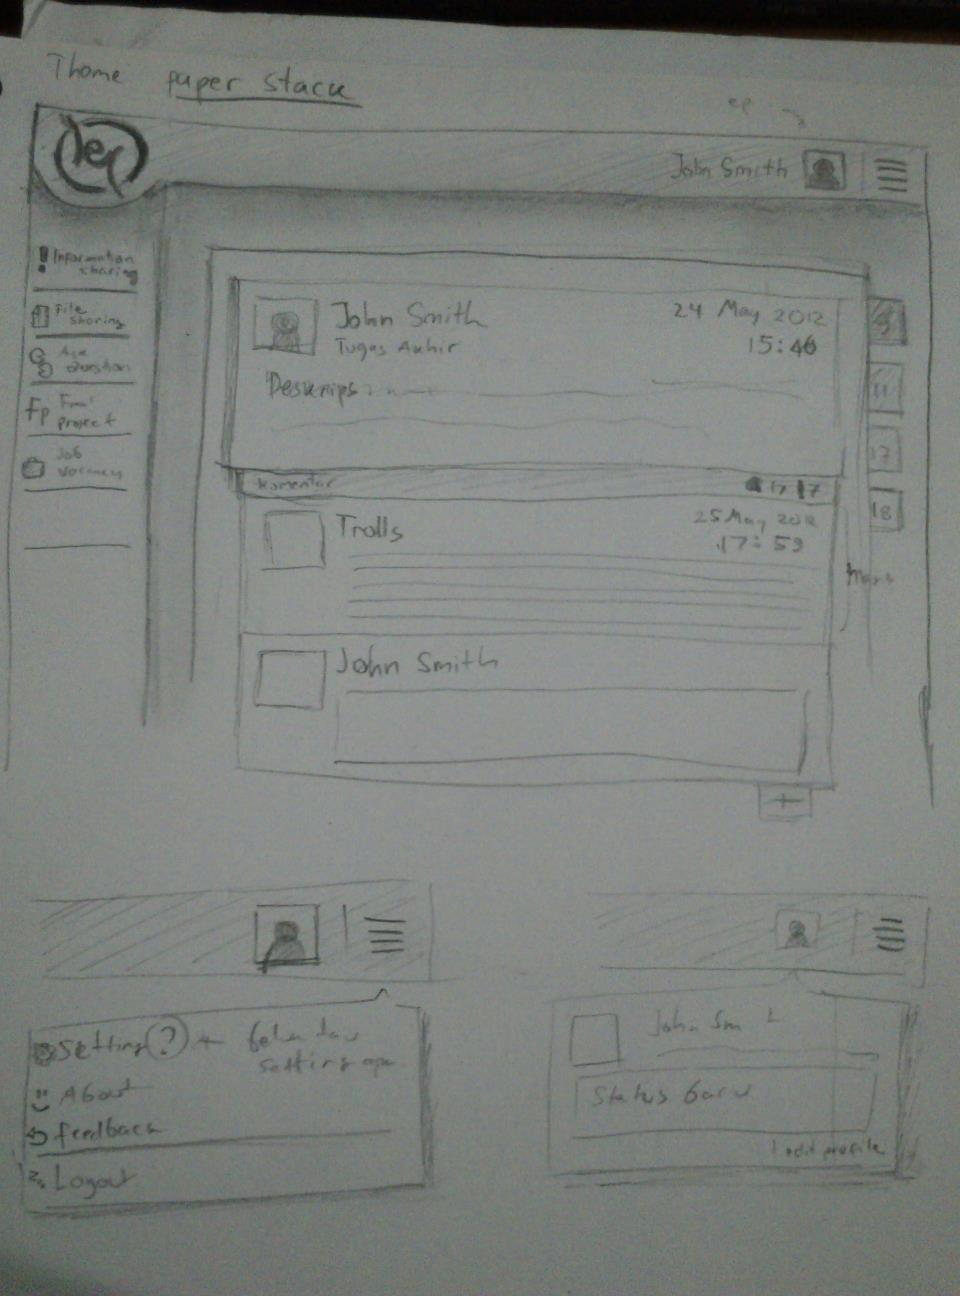 Thome paper stack
ep
John Smith
! Information
sharing
File
sharing
Ask
Question
Fp
project
Job
Vacancy
John Smith
Tugas Akhir
24 May 2012
15:46
Deskrips
11
17
18
komentar
17 17
Trolls
25 May 2012
17:59
John Smith
+
Setting ?
setting apa
About
feedback
Logout
John Sm
Status baru
edit profile